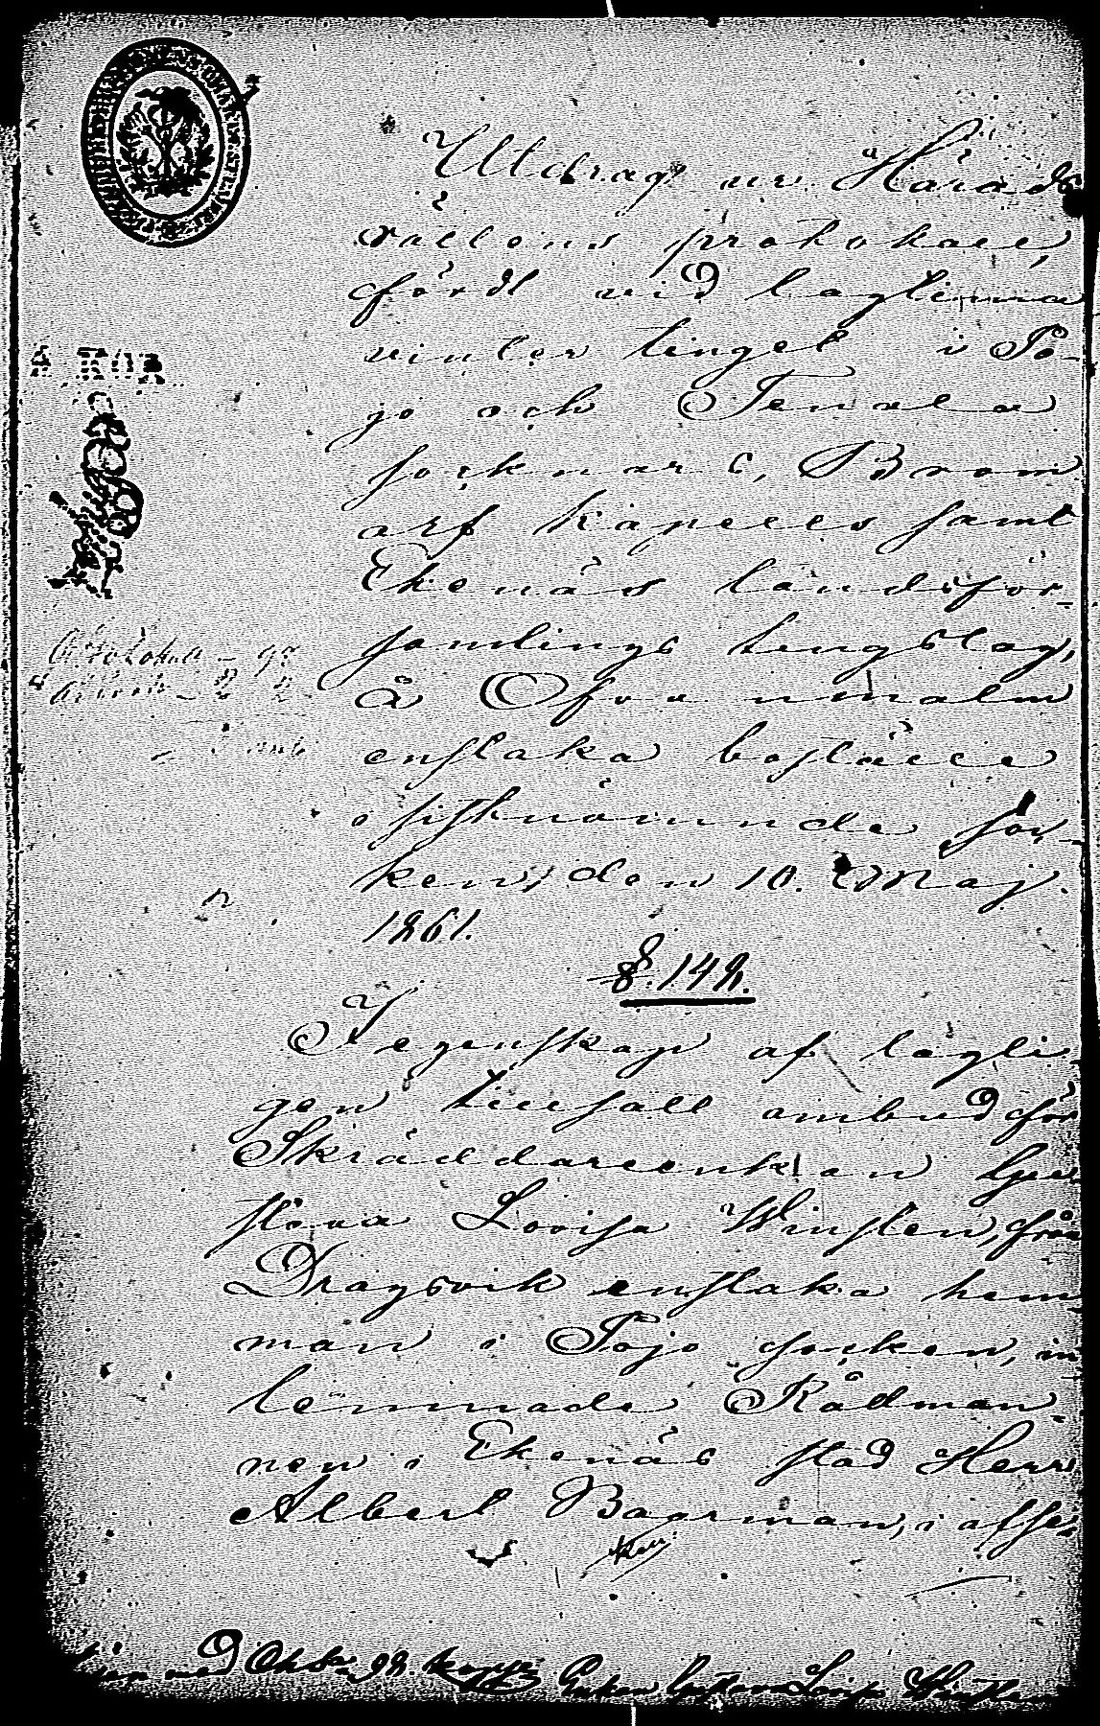 Utdrag ur Härads
rättens protokoll,
fördt vid lagtima
vinter tinget i Po-
jo och Tenala
socknars, Brom
arf kapells samt
Ekenäs landsför-
samlings tingslag,
å Ofvanmalm
enstaka boställe
i sistnämnde soc-
ken, den 10. Maj
1861.
§. 148.
I egenskap af lagli-
gen tillsatt ombud för
Skräddareenkan Gu
stava Lovisa Winsten, från
Dragsvik enstaka hem-
man i Pojo socken, in
lemnade Rådman-
nen i Ekenäs stad Herr
Albert Bagrman, i afse-
med